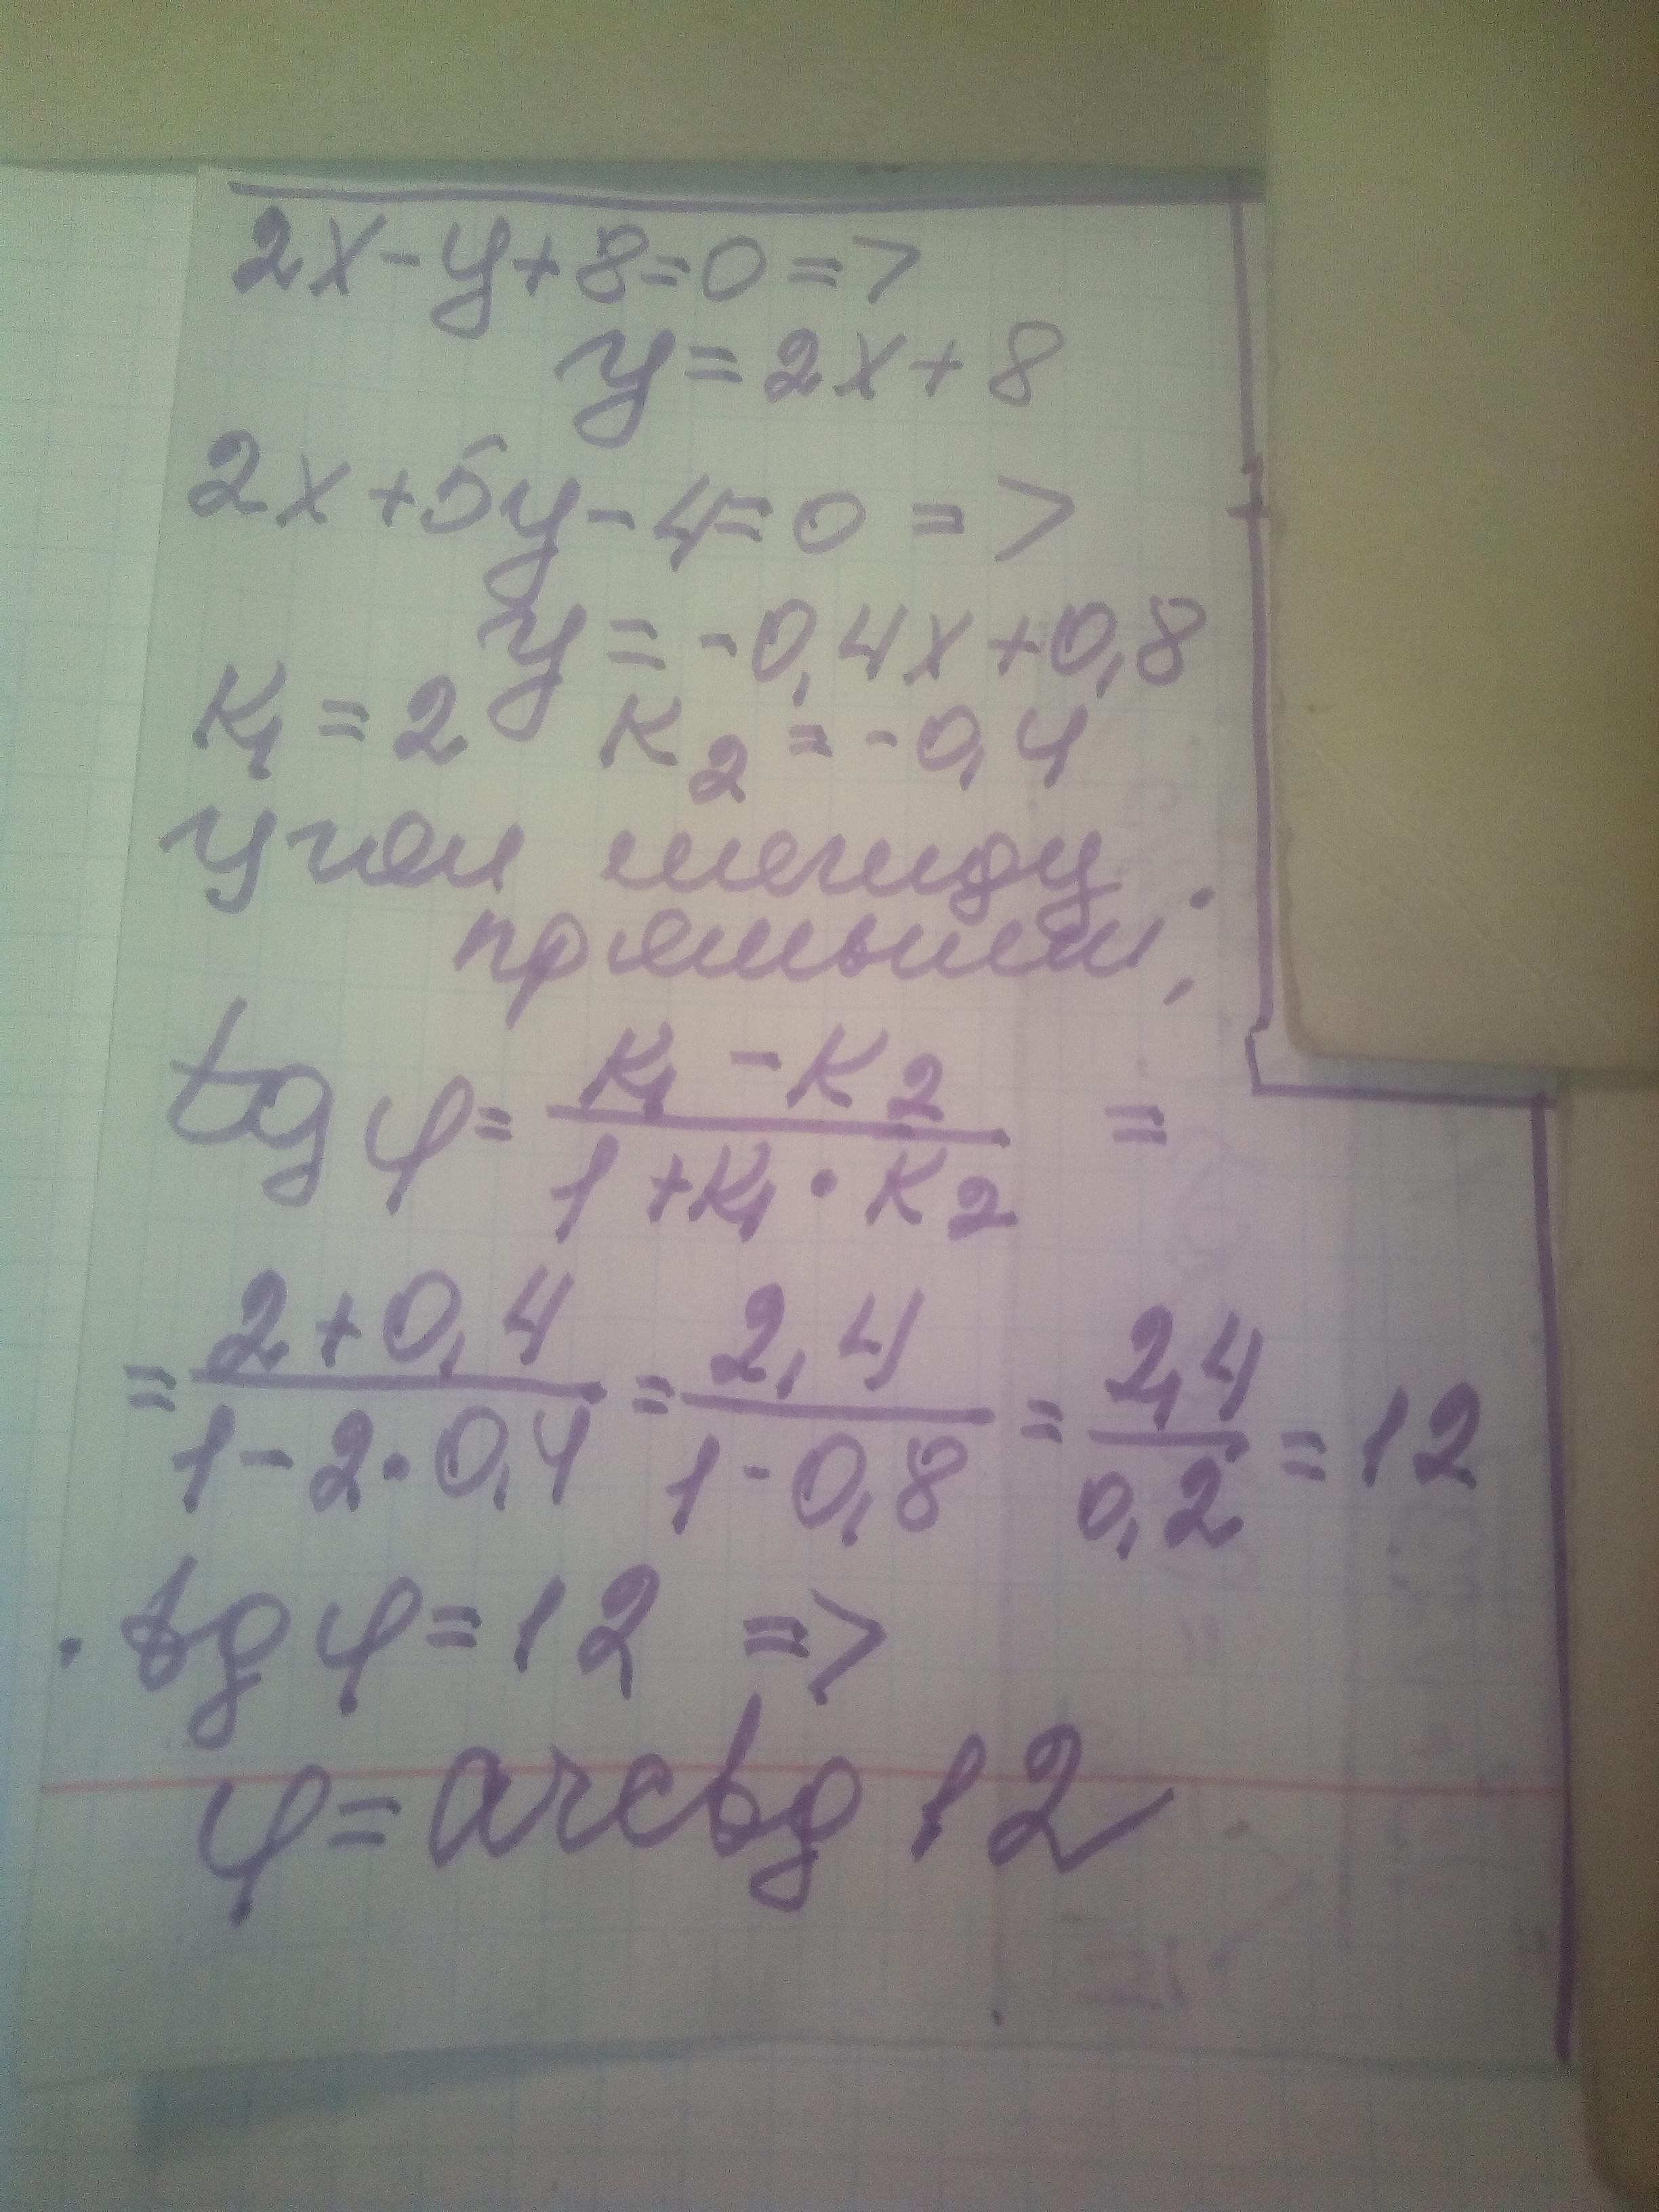 2x-y+8=0=>
y=2x+8
2x+5y-4=0=>
y=-0,4x+0,8
K₁=2 K₂=-0,4
угол между
прямыми;
tg φ = (K₁-K₂)/(1+K₁·K₂) =
= (2+0,4)/(1-2·0,4) = 2,4/(1-0,8) = 2,4/0,2 = 12
tg φ=12 =>
φ=arctg 12